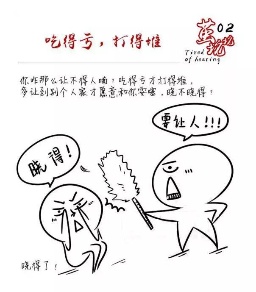 吃得亏，打得堆
02
Tired
of hearing
你咋那么让不得人喃，吃得亏才打得堆，
多让到别个人家才愿意和你耍噻，晓不晓得？
要让人!!!
晓得！
晓得了！